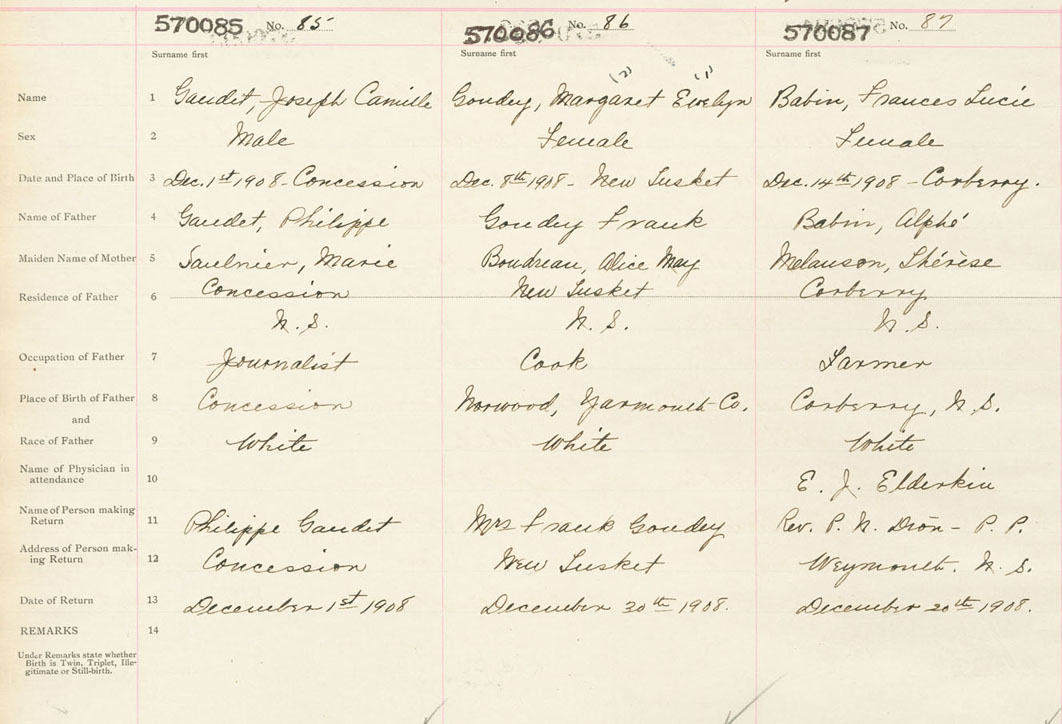 570085 No. 85 570086 No. 86 570087 No. 87
Surname first Surname first Surname first
(2) (1)
Name 1 Gaudet, Joseph Camille Goudey, Margaret Evelyn Babin, Frances Lucie
Sex 2 Male Female Female
Date and Place of Birth 3 Dec. 1st 1908 - Concession Dec. 8th 1908 - New Tusket Dec. 14th 1908 - Corberry.
Name of Father 4 Gaudet, Philippe Goudey Frank Babin, Alphé
Maiden Name of Mother 5 Saulnier, Marie Boudreau, Alice May Melanson, Thérèse
Residence of Father 6 Concession New Tusket Corberry
N. S. N. S. N. S.
Occupation of Father 7 Journalist Cook Farmer
Place of Birth of Father 8 Concession Norwood, Yarmouth Co. Corberry, N. S.
and
Race of Father 9 White White White
Name of Physician in
attendance 10 E. J. Elderkin
Name of Person making
Return 11 Philippe Gaudet Mrs Frank Goudey Rev. P. N. - P. P.
Address of Person mak-
ing Return 12 Concession New Tusket Weymouth. N. S.
Date of Return 13 December 1st 1908 December 30th 1908. December 20th 1908.
REMARKS 14
Under Remarks state whether
Birth is Twin, Triplet, Ille-
gitimate or Still-birth.